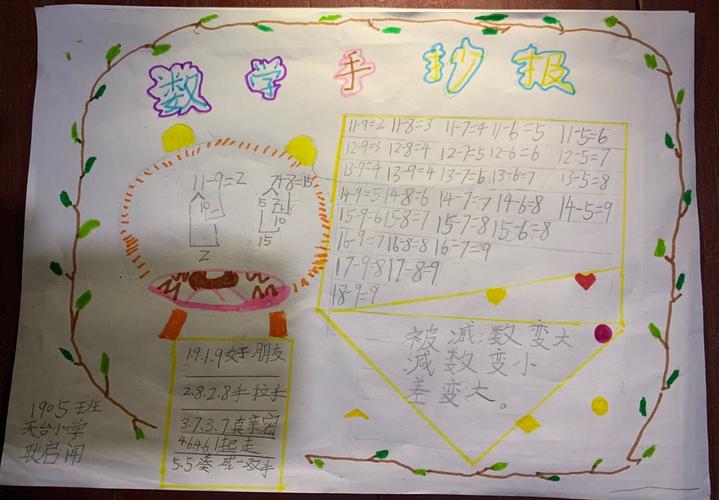 数学手抄报
11-9=2 11-8=3 11-7=4 11-6=5 11-5=6
12-9=3 12-8=4 12-7=5 12-6=6 12-5=7
13-9=4 13-9=4 13-7=6 13-6=7 13-5=8
14-9=5 14-8=6 14-7=7 14-6=8 14-5=9
15-9=6 15-8=7 15-7=8 15-6=8
16-9=7 16-8=8 16-7=9
17-9=8 17-8=9
18-9=9
11-9=2
10
2
7+8=15
5 2
10
15
被减数变大
减数变小
差变大。
1.9.1.9好朋友
2.8.2.8手拉手
3.7.3.7真亲密
4.6.4.6一起走
5.5凑成一双手
1905班
天台小学
耿启闻